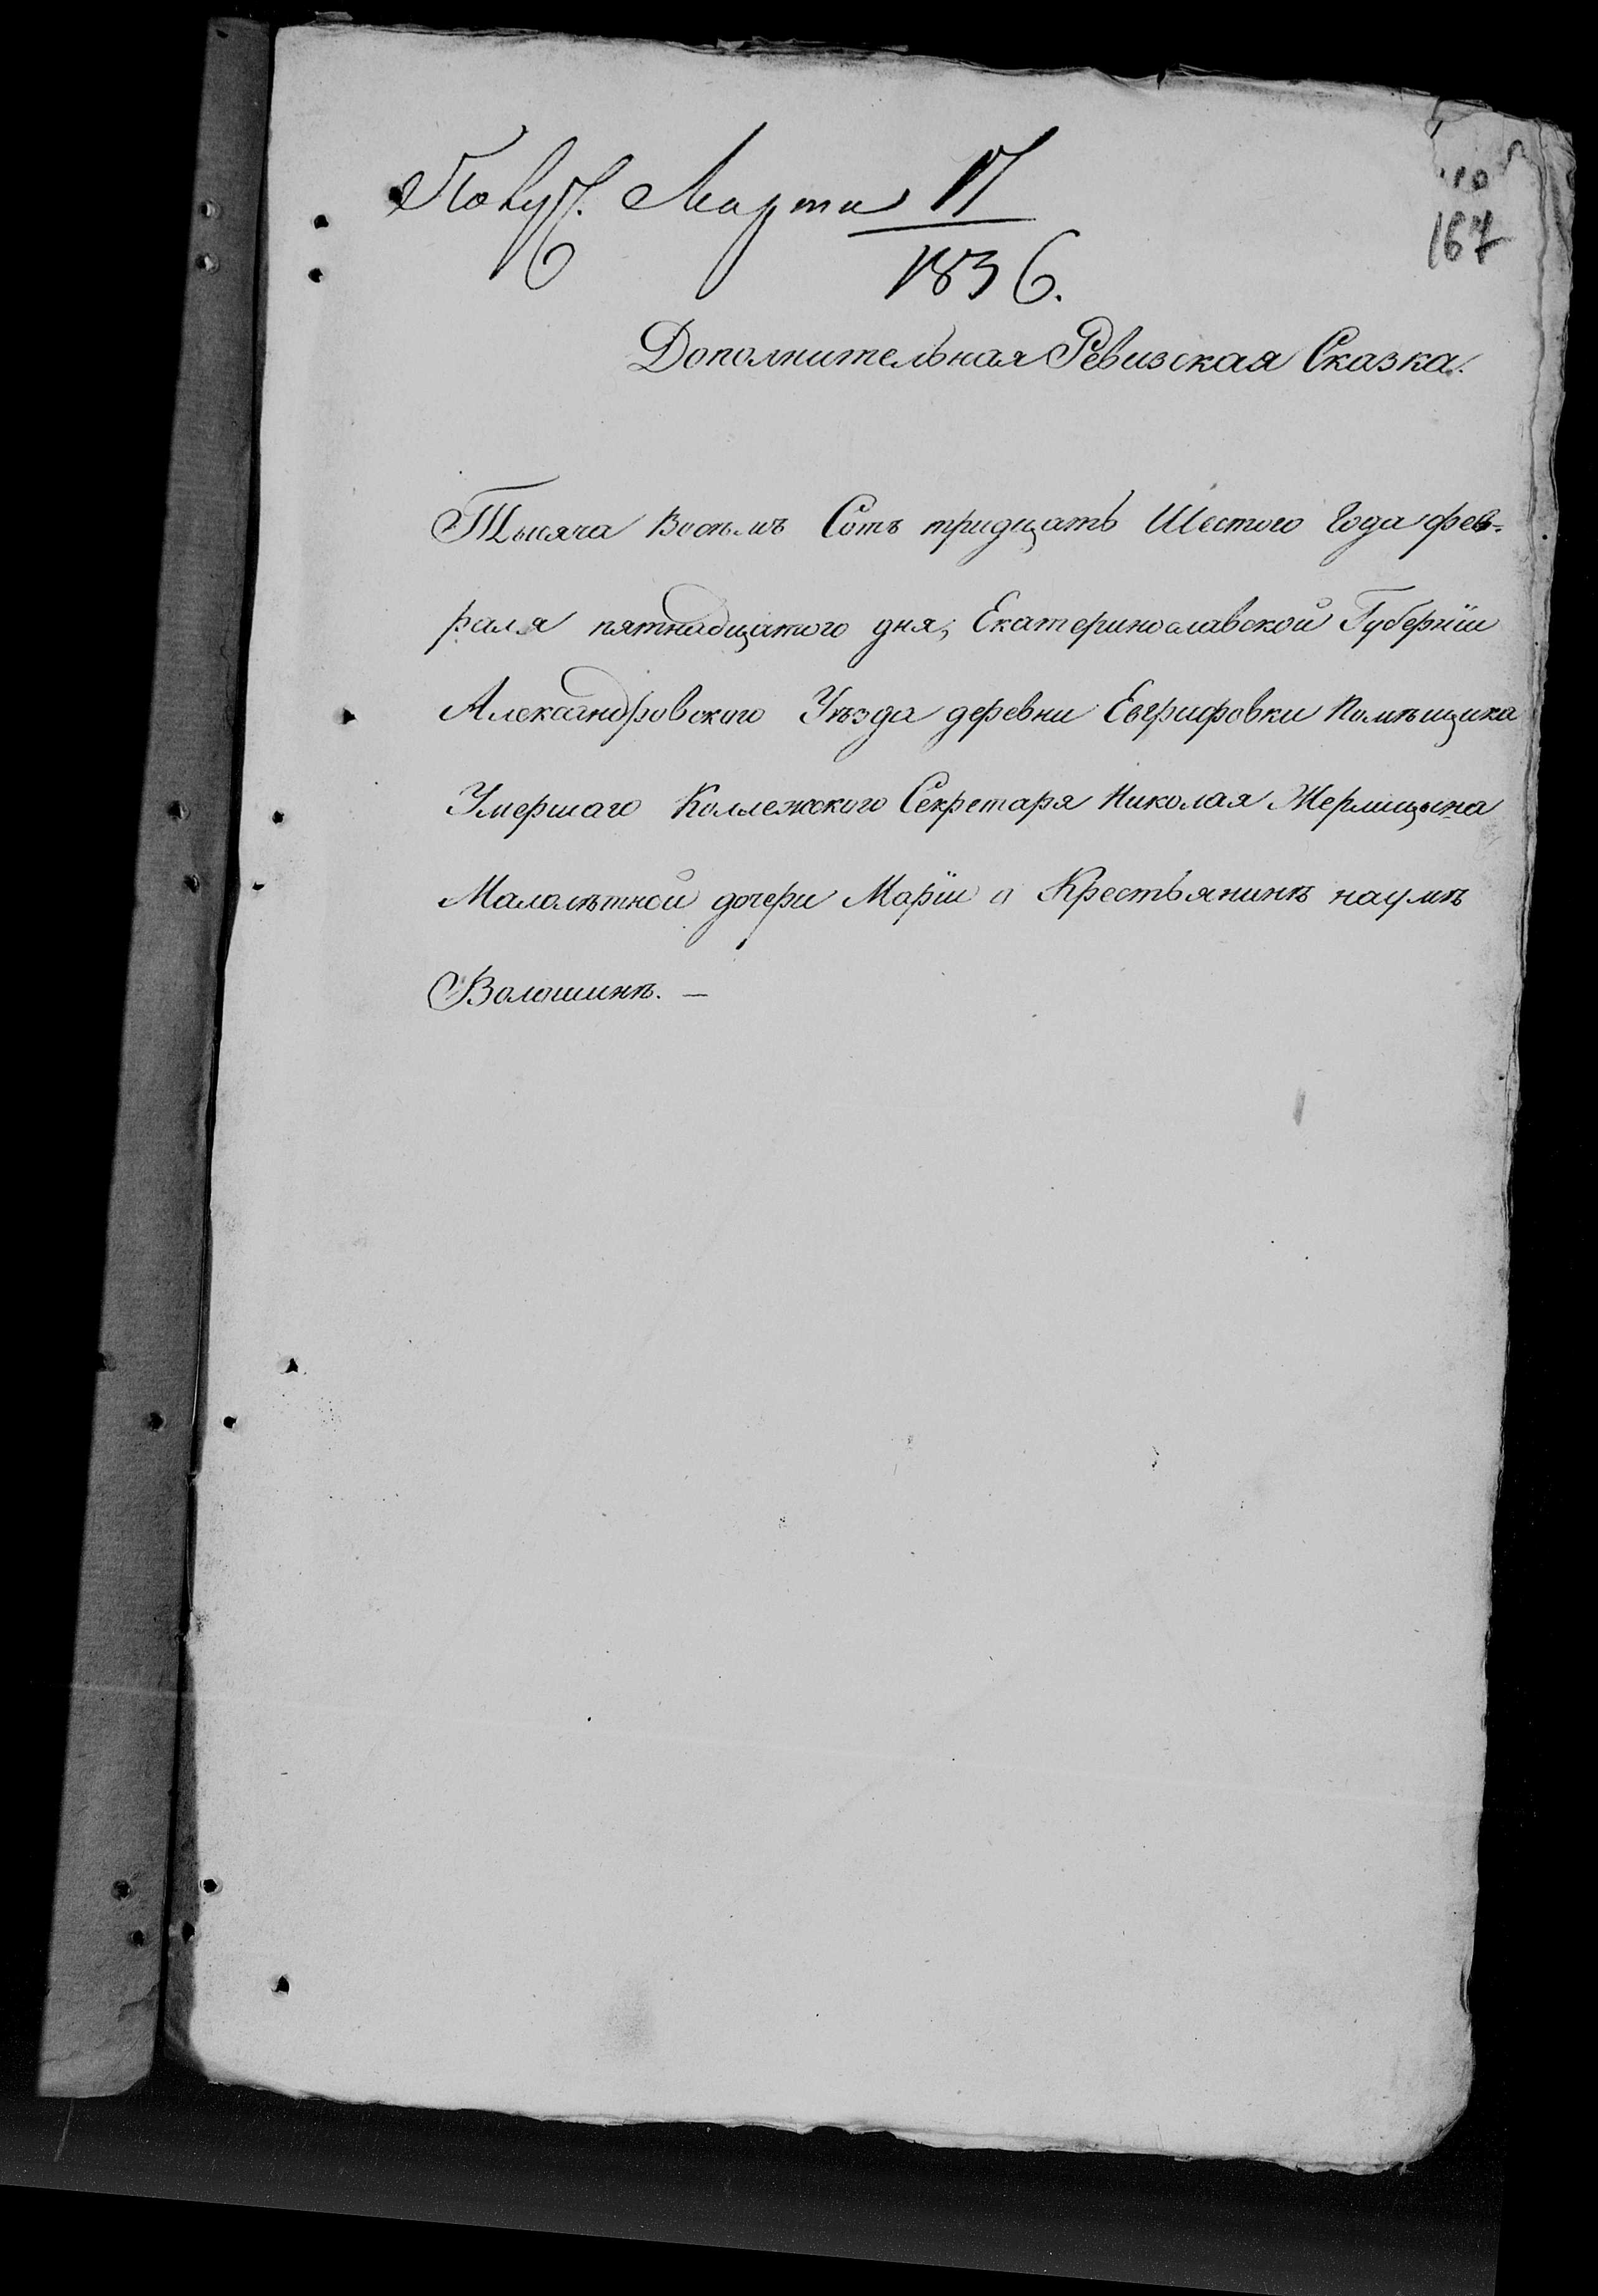 Получ. Марта 17
1836.
167
Дополнительная Ревизская Сказка.
Тысяча Восьмъ Сотъ тридцать Шестого Года фев-
раля пятнадцатого дня, Екатеринославской Губернїи
Александровского Уѣзда деревни Евграфовки Помѣщика
Умершаго Коллежского Секретаря Николая Жерлицына
Малолѣтной дочери Марїи о Крестьянинѣ наумѣ
Волошинѣ. —